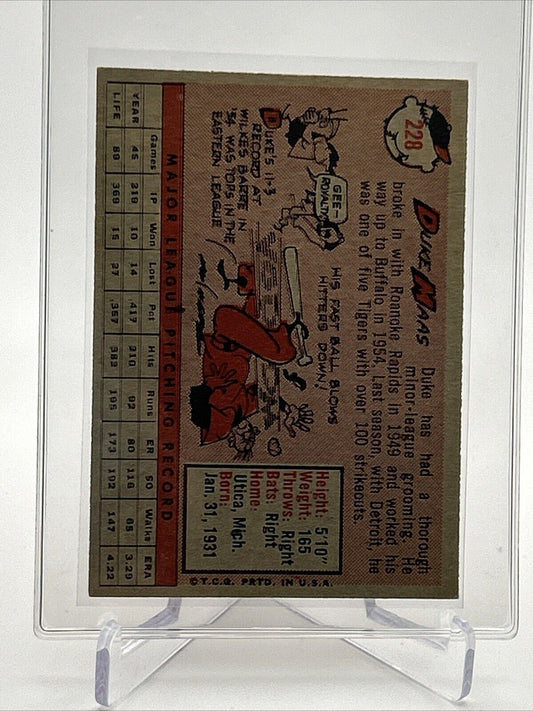 228
DUKE MAAS
Duke has had a thorough
minor-league grooming. He
broke in with Roanoke Rapids in 1949 and worked his
way up to Buffalo in 1954. Last season, with Detroit, he
was one of five Tigers with over 100 strikeouts.
DUKE'S 11-3
RECORD AT
WILKES BARRE IN
'54 WAS TOPS IN THE
EASTERN LEAGUE
GEE-
ROYALTY!
HIS FAST BALL BLOWS
HITTERS DOWN!
Height: 5'10"
Weight: 165
Throws: Right
Bats: Right
Home:
Utica, Mich.
Born:
Jan. 31, 1931
MAJOR LEAGUE PITCHING RECORD
Games IP Won Lost Pct Hits Runs ER SO Walks ERA
YEAR 45 219 10 14 .417 210 92 80 116 65 3.29
LIFE 89 369 15 27 .357 382 195 173 192 147 4.22
©T.C.G. PRTD. IN U.S.A.